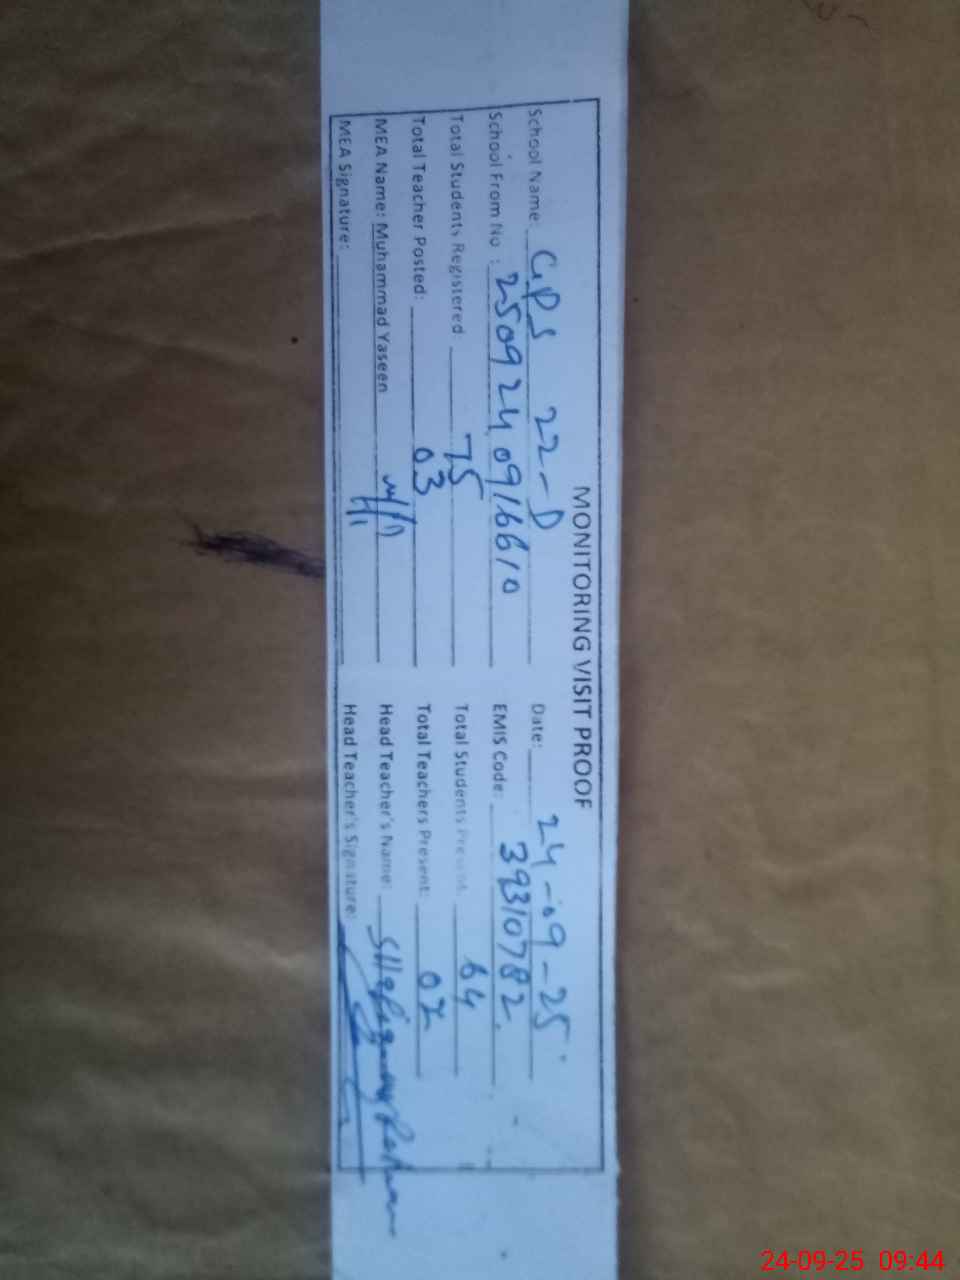 MONITORING VISIT PROOF
School Name: GPS 22-D Date: 24-09-25
School From No : 25092409166610 EMIS Code: 39310782
Total Students Registered: 75 Total Students Present: 64
Total Teacher Posted: 03 Total Teachers Present: 02
MEA Name: Muhammad Yaseen Head Teacher's Name:
MEA Signature: Head Teacher's Signature:
24-09-25 09:44